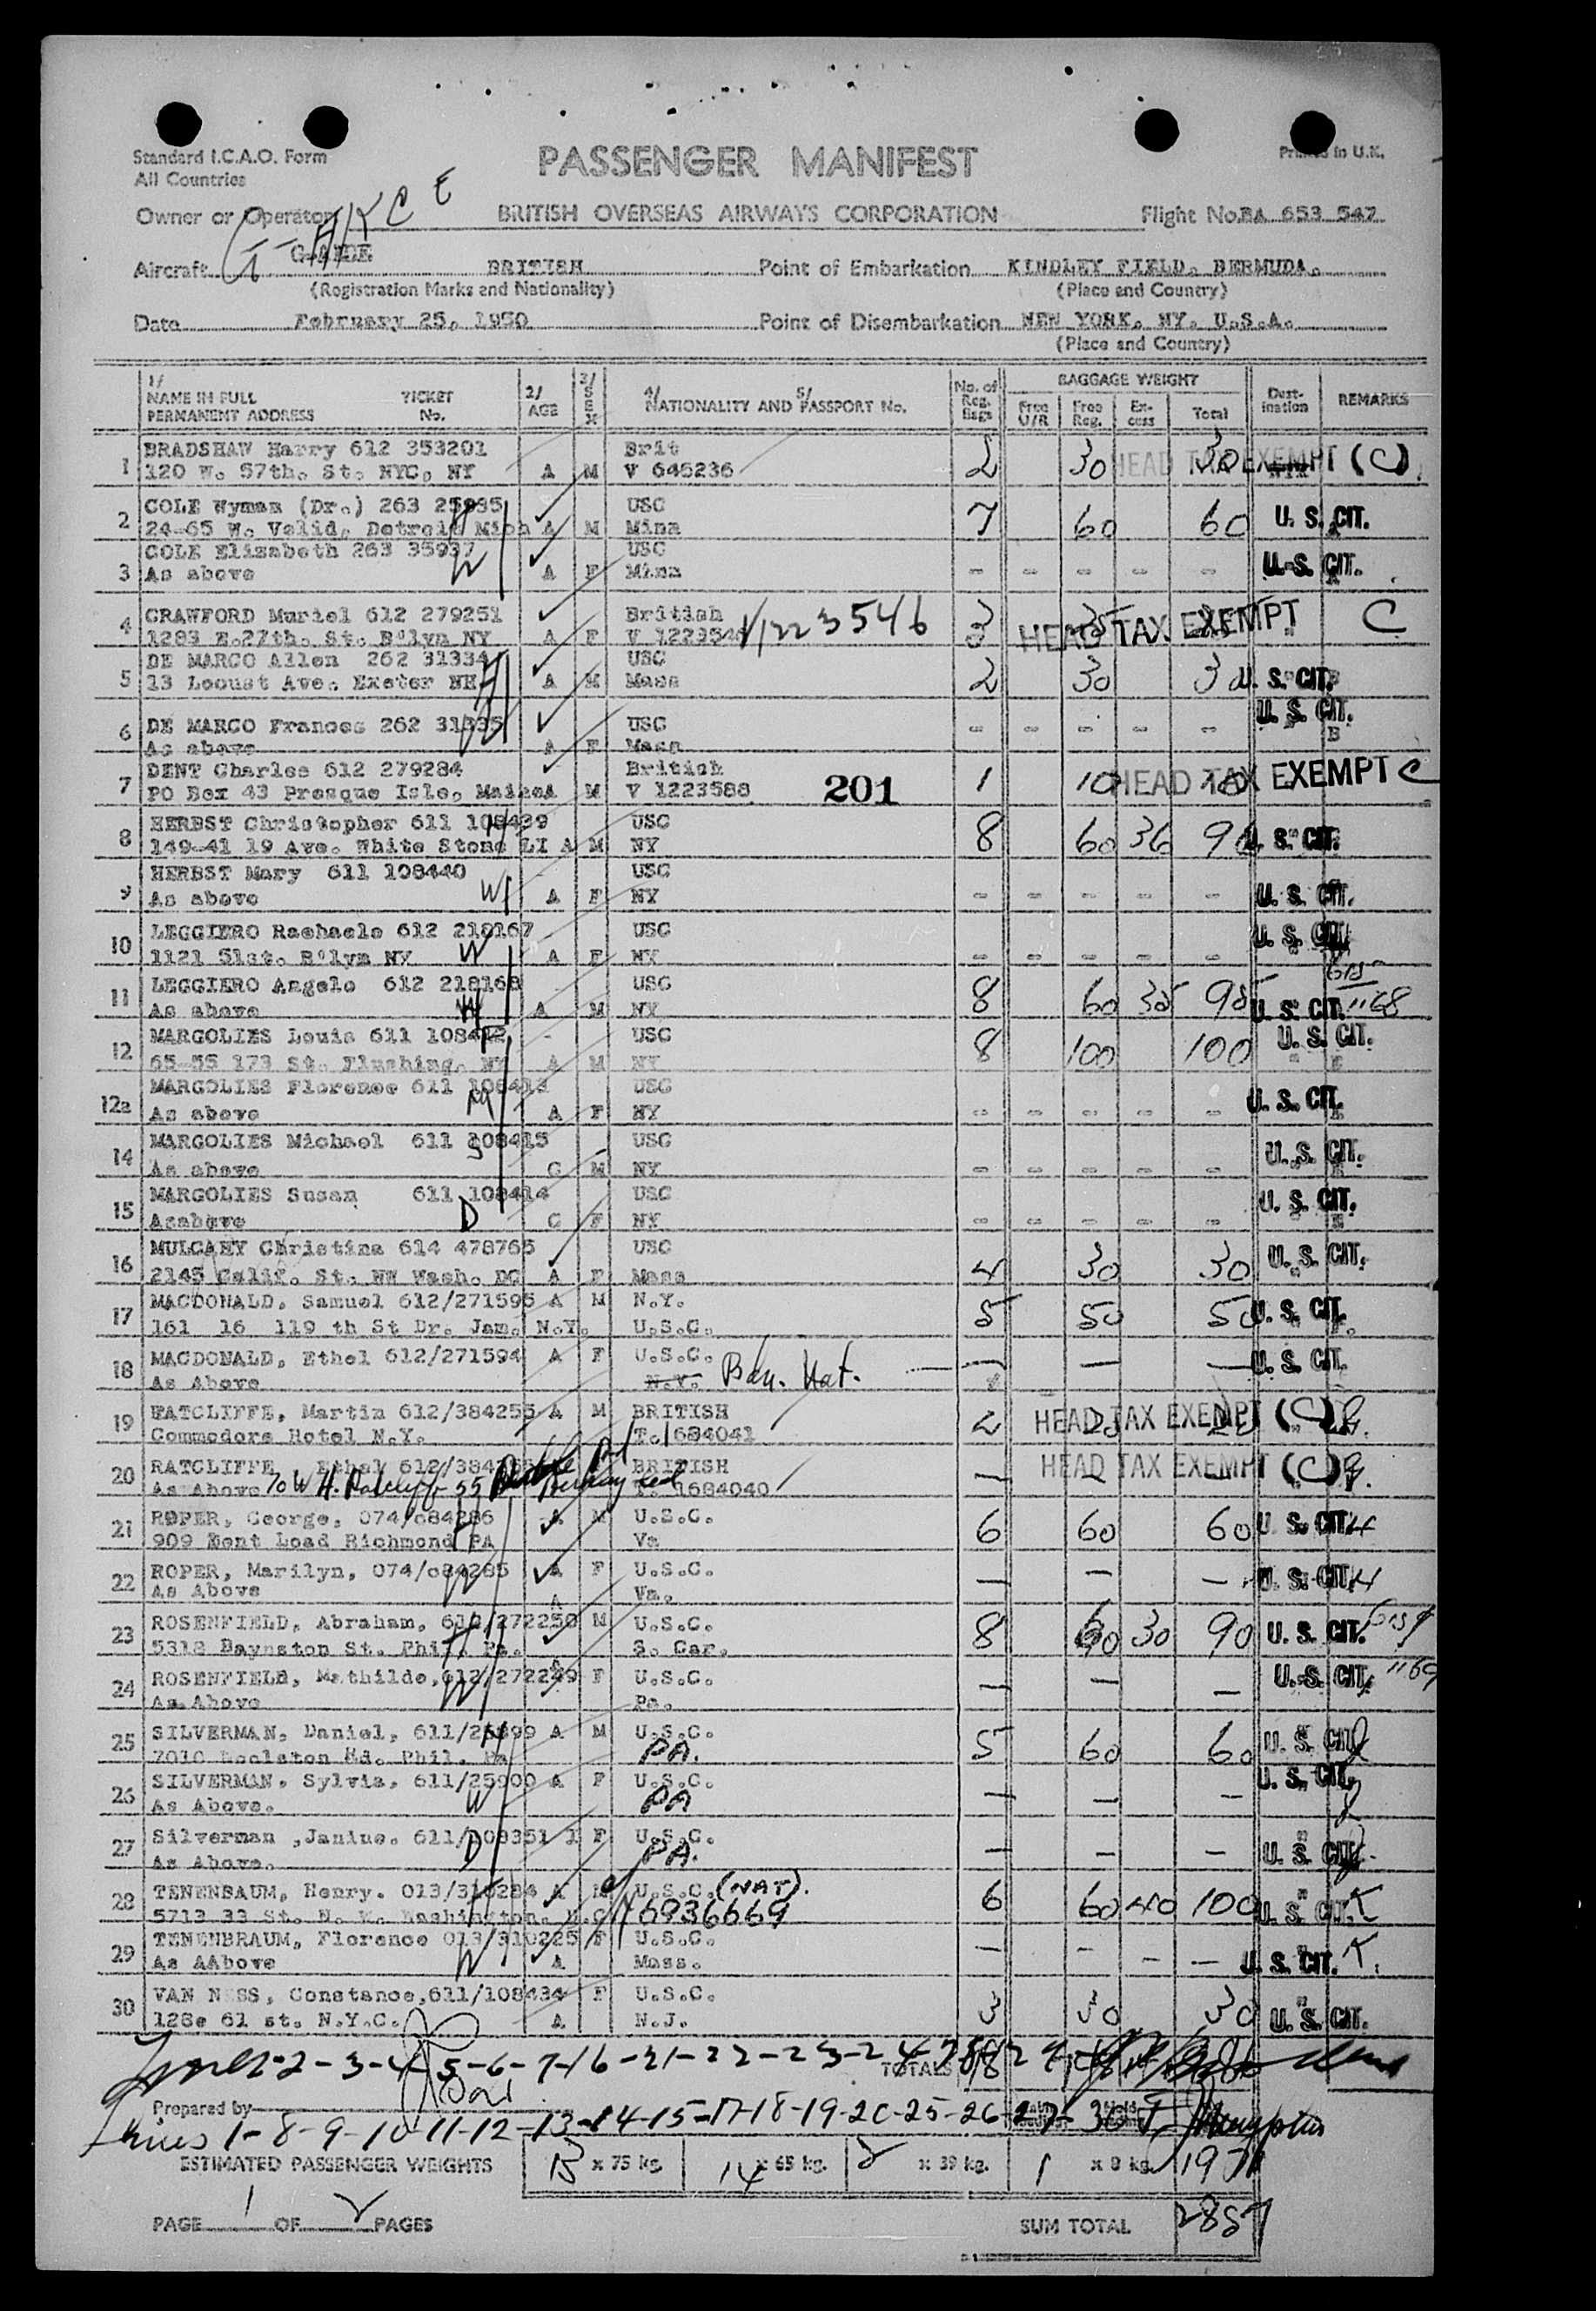 Standard I.C.A.O. Form
All Countries
PASSENGER MANIFEST
Printed in U.K.
Owner or Operator BRITISH OVERSEAS AIRWAYS CORPORATION Flight No. BA 653 547
G-AHKC E
Aircraft BRITISH Point of Embarkation KINDLEY FIELD, BERMUDA.
(Registration Marks and Nationality) (Place and Country)
Date February 25, 1950 Point of Disembarkation NEW YORK, NY. U.S.A.
(Place and Country)
1/ NAME IN FULL PERMANENT ADDRESS TICKET No. 2/ AGE 3/ SEX 4/ NATIONALITY AND 5/ PASSPORT No. No. of Reg. Bags BAGGAGE WEIGHT Free U/R Free Reg. Excess Total Destination REMARKS
1 BRADSHAW Harry 612 353201 Brit 2 30 30 HEAD TAX EXEMPT (C)
120 W. 57th. St. NYC, NY A M V 645236
2 COLE Wyman (Dr.) 263 25935 USC 7 60 60 U. S. CIT.
24-65 W. Valid, Detroit Mich A M Minn
3 COLE Elizabeth 263 35937 USC W
As above A F Minn - - - - - U. S. CIT.
4 CRAWFORD Muriel 612 279251 British V1223546 3 35 HEAD TAX EXEMPT C
1283 E.27th. St. B'lyn NY A F
5 DE MARCO Allen 262 31334 USC H 2 30 30 U. S. CIT.
13 Locust Ave. Exeter NH A M Mass
6 DE MARCO Frances 262 31335 USC W - - - - - U. S. CIT.
As above A F Mass
7 DENT Charles 612 279284 British 201 1 10 10 HEAD TAX EXEMPT C
PO Box 43 Presque Isle, Maine A M V 1223588
8 HERBST Christopher 611 108439 USC H 8 60 36 96 U. S. CIT.
149-41 19 Ave. White Stone LI A M NY
9 HERBST Mary 611 108440 USC W
As above A F NY - - - - - U. S. CIT.
10 LEGGIERO Rachaele 612 218167 USC U. S. CIT.
1121 51st. B'lyn NY W A F NY - - - - -
11 LEGGIERO Angelo 612 218168 USC 8 60 35 95 U. S. CIT. "68
As above A M NY
12 MARGOLIES Louis 611 108412 USC 8 100 100 U. S. CIT.
65-55 173 St. Flushing, NY A M NY
12a MARGOLIES Florence 611 108413 USC M
As above A F NY - - - - - U. S. CIT.
14 MARGOLIES Michael 611 108415 USC S
As above C M NY - - - - - U. S. CIT.
15 MARGOLIES Susan 611 108414 USC D
As above C F NY - - - - - U. S. CIT.
16 MULCAHY Christina 614 478765 USC 4 30 30 U. S. CIT.
2145 Calif. St. NW Wash. DC A F Mass
17 MACDONALD, Samuel 612/271595 A M N.Y. 5 50 50 U. S. CIT.
161 16 119 th St Dr. Jam. N.Y. U.S.C.
18 MACDONALD, Ethel 612/271594 A F U.S.C. — — — U. S. CIT.
As Above N.Y. Nat.
19 RATCLIFFE, Martin 612/384255 A M BRITISH 2 HEAD TAX EXEMPT (C)
Commodore Hotel N.Y. T. 1684041
20 RATCLIFFE, Ethel BRITISH — HEAD TAX EXEMPT (C)
As Above T. 1684040
21 ROPER, George, 074/084286 A M U.S.C. 6 60 60 U. S. CIT. H
909 Dent Load Richmond PA Va
22 ROPER, Marilyn, 074/084285 A F U.S.C. W — — — U. S. CIT. H
As Above Va.
23 ROSENFIELD, Abraham, 612/272250 M U.S.C. 8 60 30 90 U. S. CIT.
5318 Baynston St. Phil. Pa. S. Car.
24 ROSENFIELD, Mathilde, 612/272249 F U.S.C. W — — — U. S. CIT. "69
As Above Pa.
25 SILVERMAN, Daniel, 611/25899 A M U.S.C. H 5 60 60 U. S. CIT.
7010 Rd. Phil. Pa PA.
26 SILVERMAN, Sylvia, 611/25900 A F U.S.C. W — — — U. S. CIT.
As Above. PA
27 Silverman ,Janine. 611/108351 1 F U.S.C. D — — — U. S. CIT.
As Above. PA.
28 TENENBAUM, Henry. 013/310284 A M U.S.C. (NAT). 6 60 40 100 U. S. CIT. K
5713 33 St. N. W. Washington. D.C. #6936669
29 TENENBRAUM, Florence 013/310225 F U.S.C. W — — — — U. S. CIT. K.
As AAbove A Mass.
30 VAN NESS, Constance,611/108434 F U.S.C. 3 30 30 U. S. CIT.
128e 61 st. N.Y.C. A N.J.
Lines 2-3-4-5-6-7-16-21-22-23-24
TOTALS
Prepared by
Lines 1-8-9-10-11-12-13-14-15-17-18-19-20-25-26-27-30
ESTIMATED PASSENGER WEIGHTS 13 x 75 kg. 14 x 65 kg. 2 x 39 kg. 1 x 8 kg.
PAGE 1 OF 2 PAGES SUM TOTAL 2857